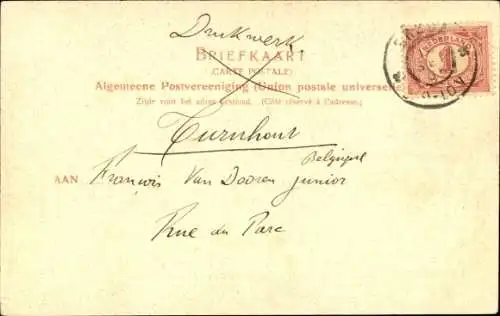 Drukwerk.
BRIEFKAART
(CARTE POSTALE)
Algemeene Postvereeniging (Union postale universelle)
Zijde voor het adres bestemd. (Côté réservé à l'adresse.)
Turnhout
Belgique
AAN François Van Dooren junior
Rue du Parc
NEDERLAND
1